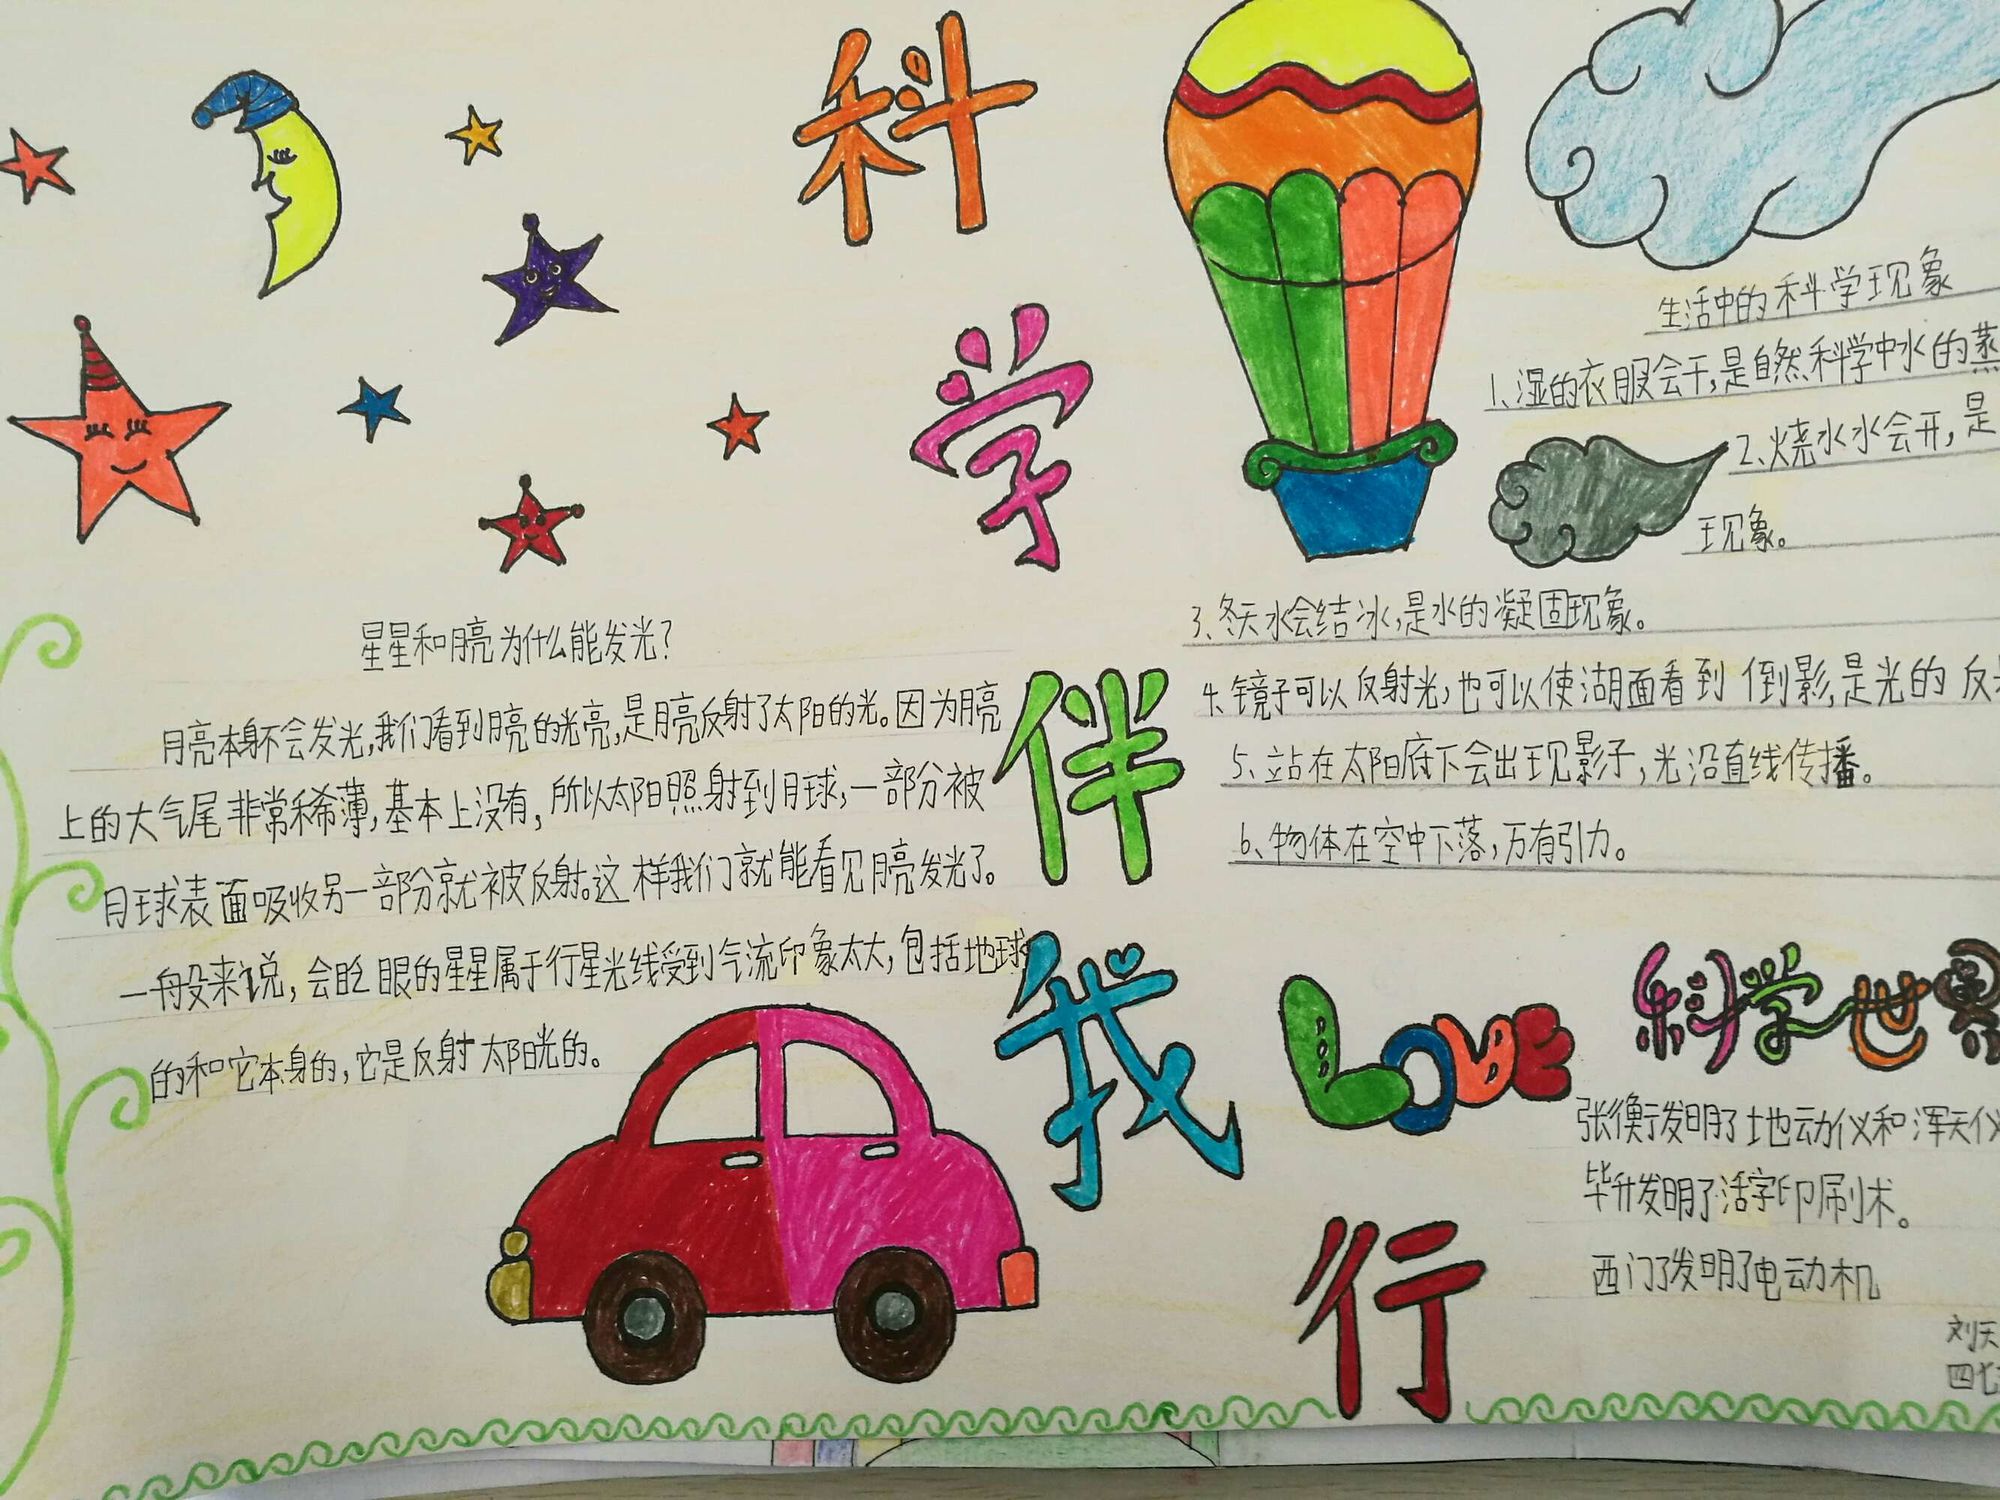 科
学
伴
我
行
星星和月亮为什么能发光?
月亮本身不会发光,我们看到月亮的光亮,是月亮反射了太阳的光。因为月亮
上的大气尾非常稀薄,基本上没有,所以太阳照射到月球,一部分被
月球表面吸收另一部分就被反射。这样我们就能看见月亮发光了。
一般来说,会眨眼的星星属于行星光线受到气流印象太大,包括地球
的和它本身的,它是反射太阳光的。
生活中的科学现象
1、湿的衣服会干,是自然科学中水的蒸
2、烧水水会开,是
现象。
3、冬天水会结冰,是水的凝固现象。
4、镜子可以反射光,也可以使湖面看到倒影,是光的反
5、站在太阳底下会出现影子,光沿直线传播。
6、物体在空中下落,万有引力。
LOVE 科学世界
张衡发明了地动仪和浑天仪
毕升发明了活字印刷术。
西门子发明了电动机
刘天
四七